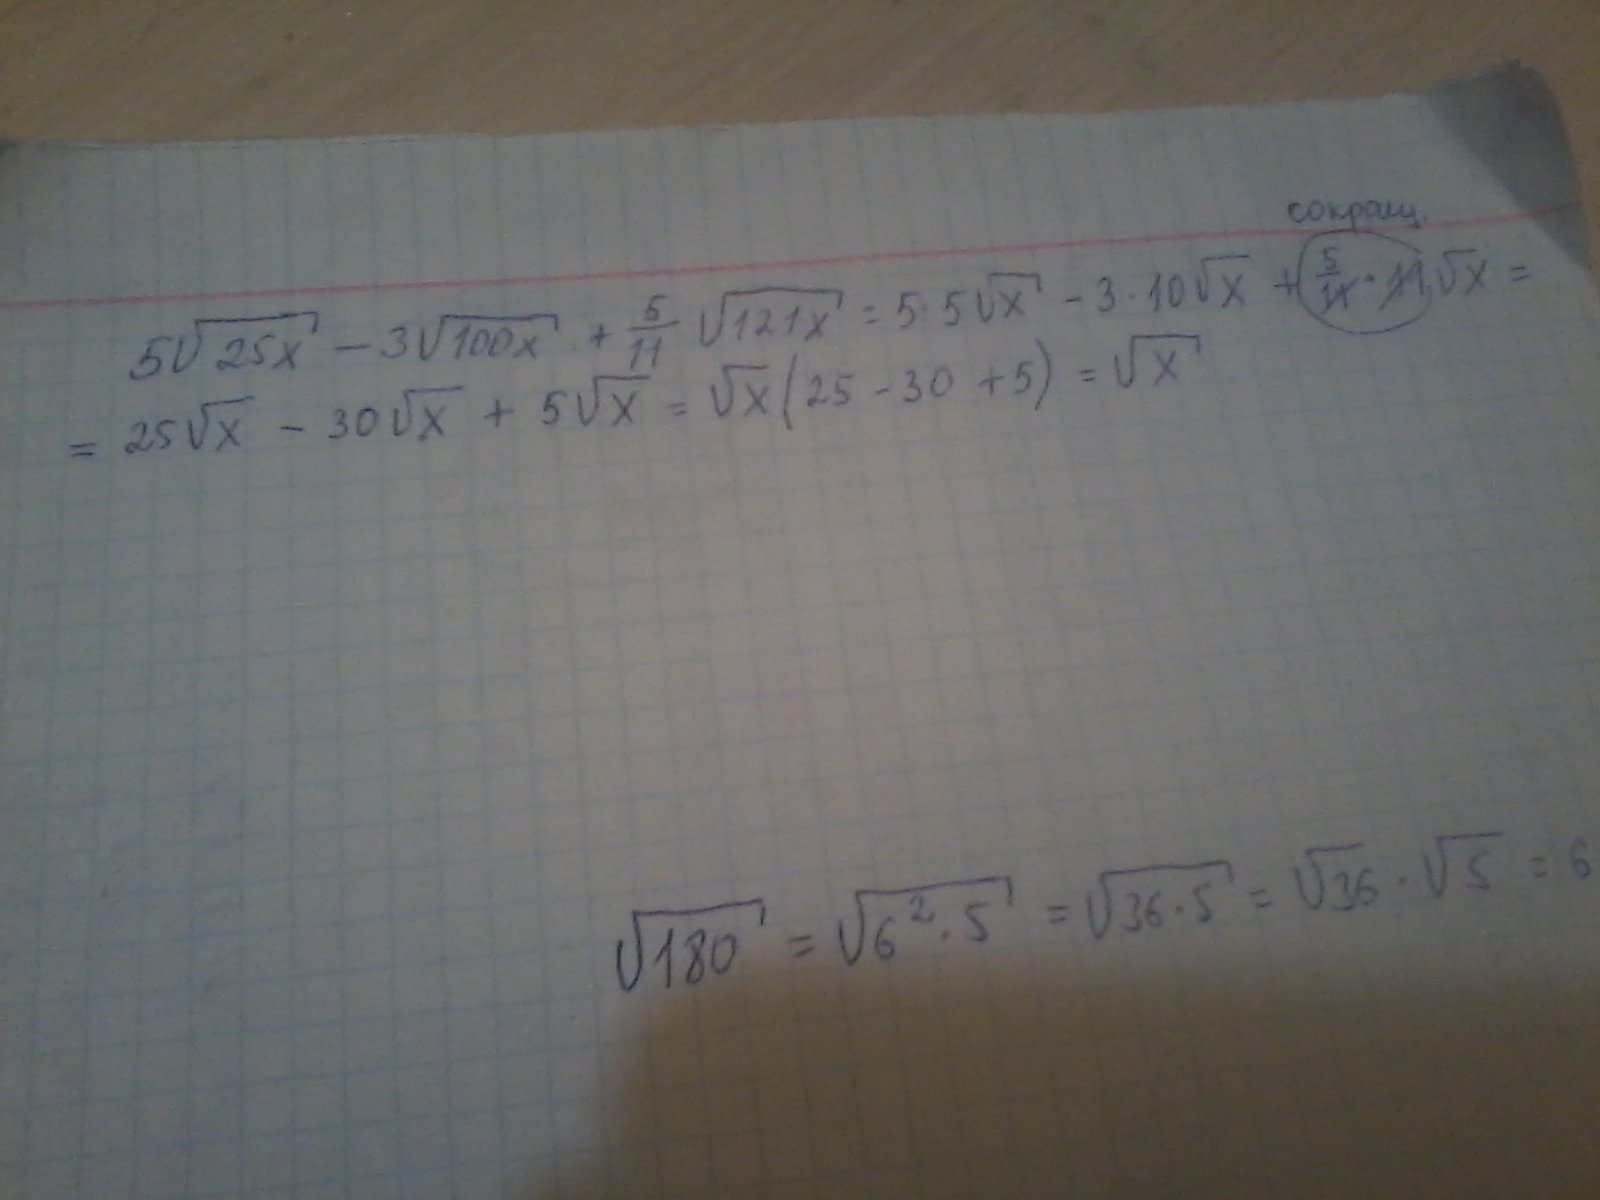 сокращ.
5√25x − 3√100x + 5/11 √121x = 5·5√x − 3·10√x + 5/11 · 11√x =
= 25√x − 30√x + 5√x = √x(25 − 30 + 5) = √x
√180 = √6²·5 = √36·5 = √36 · √5 = 6